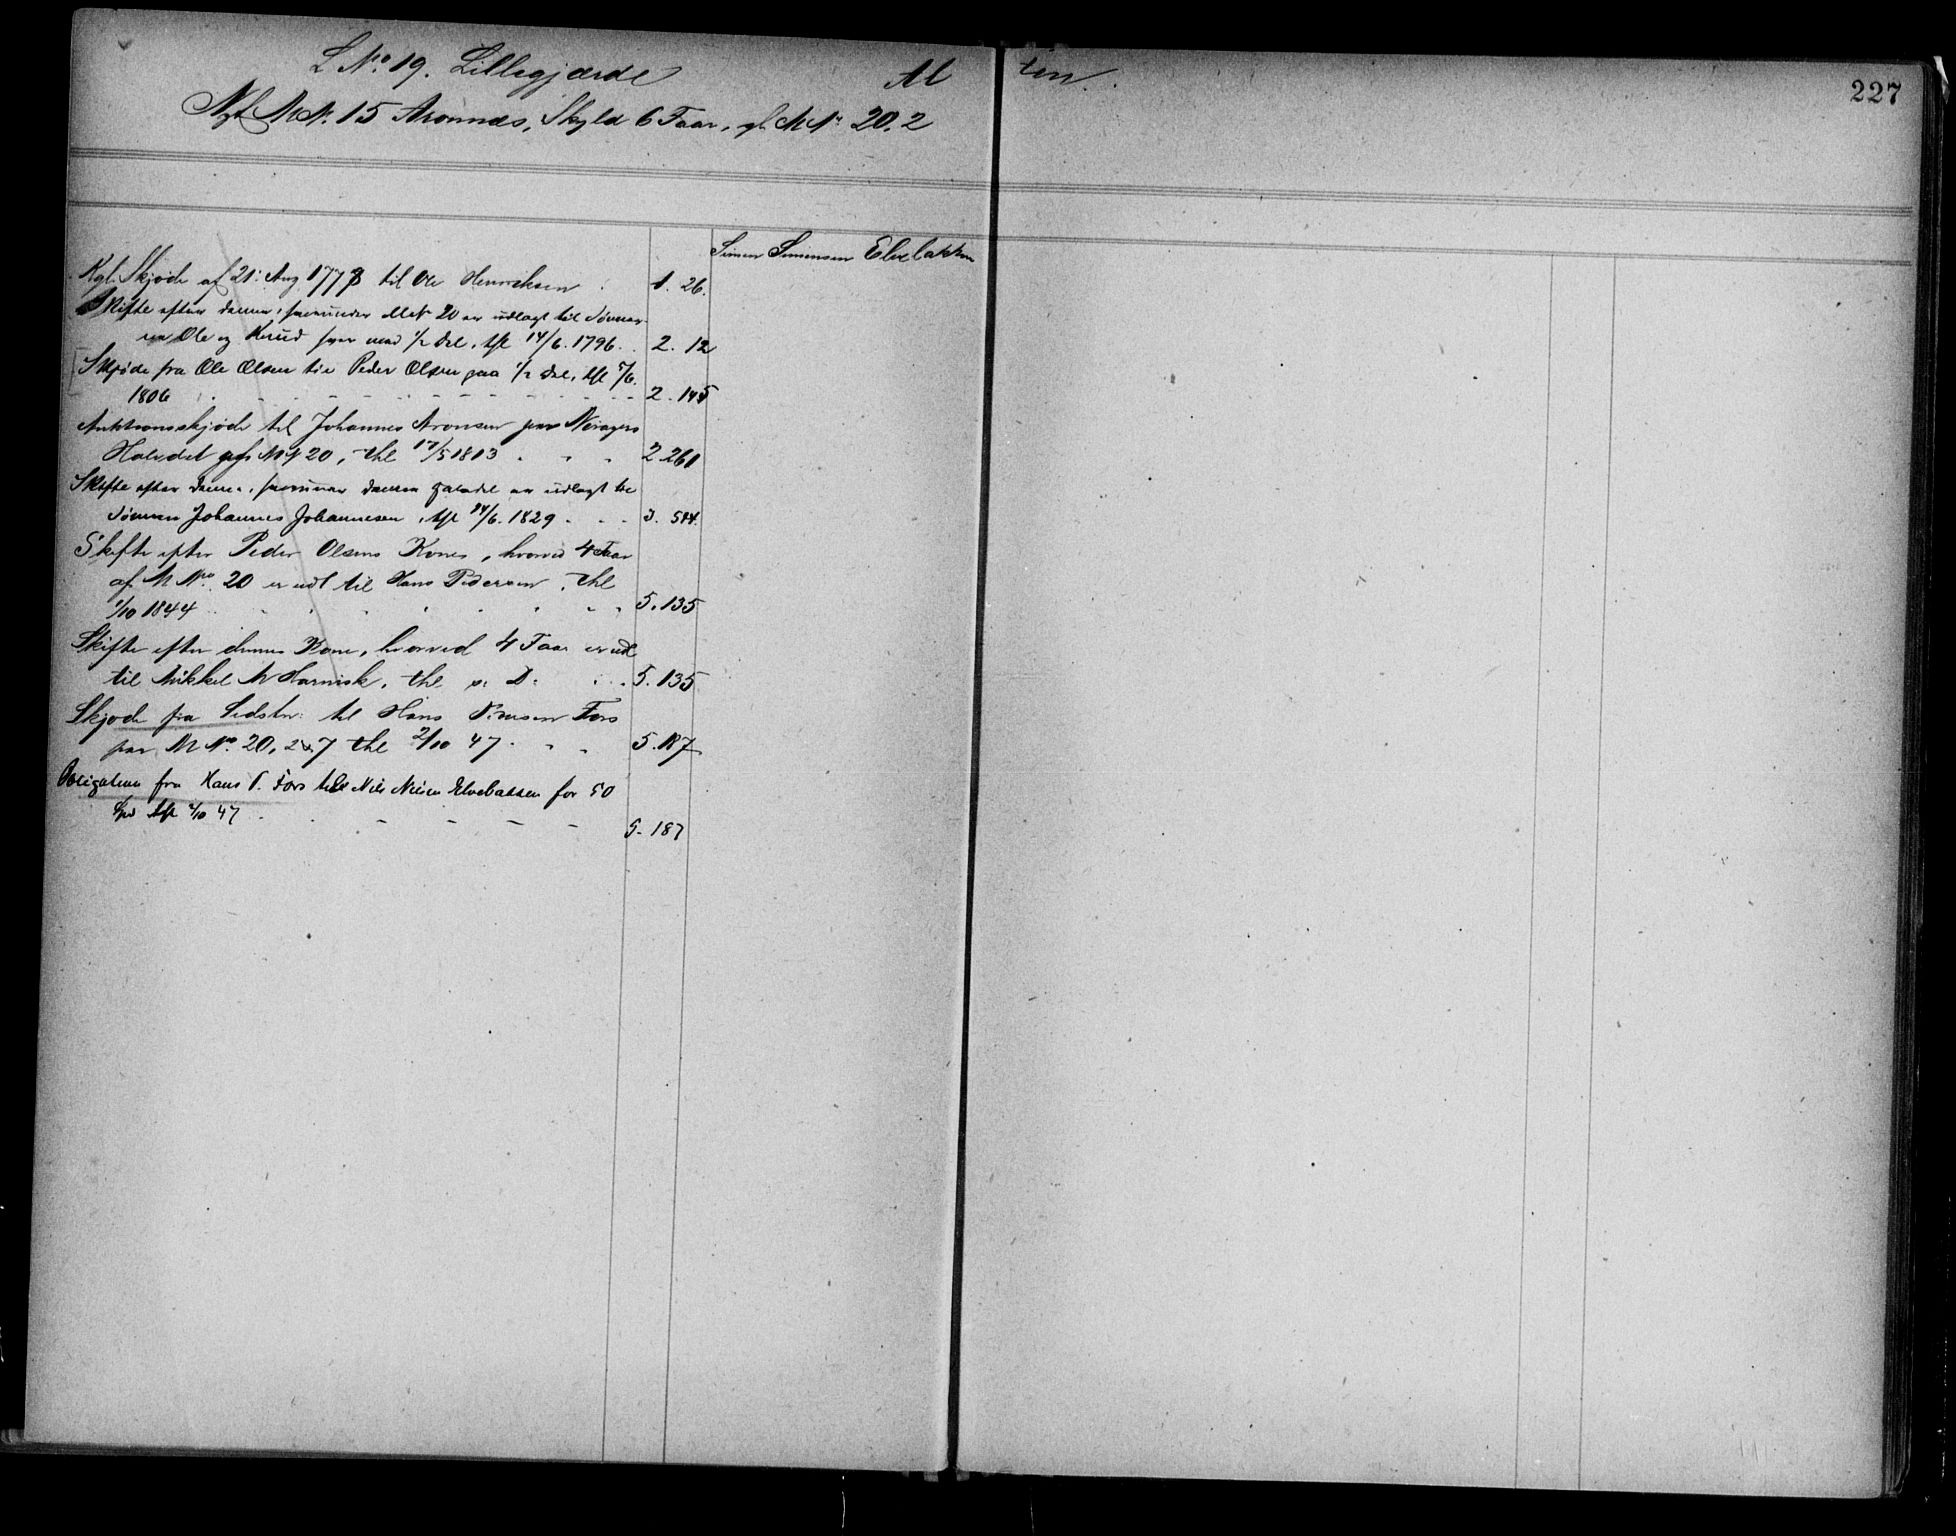 L No. 19. Lillegjærde
Al ten.
227
Nyt M.N. 15 Aronnæs, Skyld 6 Faar, gl. M.No. 20.2
Simen Simensen Elvebakken
Kgl. Skjøde af 21. Aug. 1778 til Ole Henriksen . 1. 26.
Skifte efter denne, hvorunder M.N. 20 er udlagt til Sønner-
ne Ole og Knud hver med 1/2 Del, thl 14/6. 1796. . 2. 12
Skjøde fra Ole Olsen til Peder Olsen paa 1/2 Del, thl 5/6.
1806 2. 145
Auktionsskjøde til Johannes Aronsen paa
Halvdel af M N 20, thl 17/5 1813 . . . 2. 261
Skifte efter denne, hvorunder denne Halvdel er udlagt til
Sønnen Johannes Johannesen, thl 24/6. 1829 . . . 3. 514.
Skifte efter Peder Olsens Kone, hvorved 4 Faar
af M No. 20 er udl til Hans Pedersen, thl
1/10 1844 5. 135
Skifte efter dennes Kone, hvorved 4 Faar er udl
til Mikkel M Harnisk, thl s. D. 5. 135
Skjøde fra Sidstn: til Hans Fors
paa M No. 20, 2 & 7 thl 2/10 47 . . . 5. 187
Obligation fra Hans P. Fors til Nils Nilsen Elvebakken for 50
Spd thl 2/10 47 . 5. 187